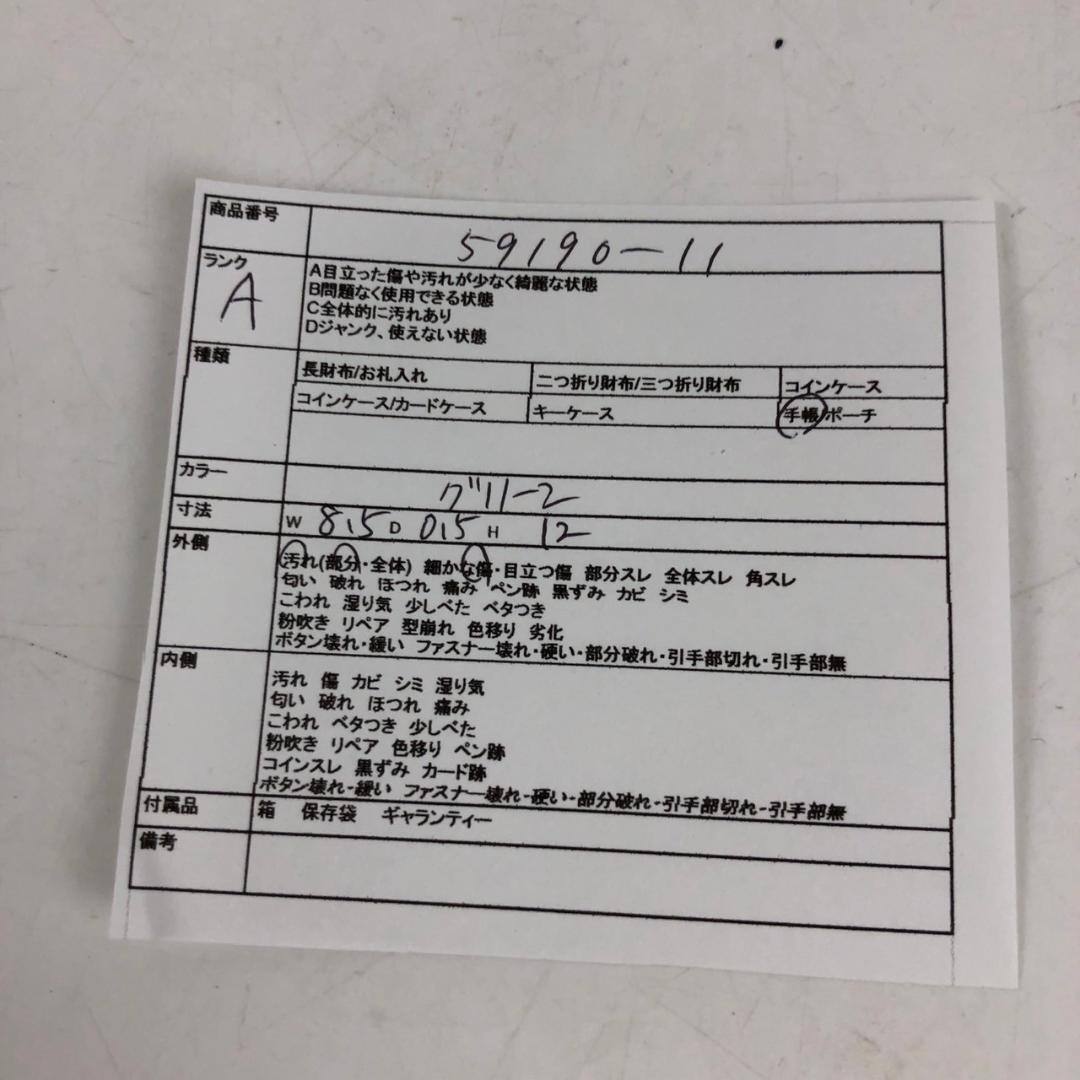 商品番号 59190-11
ランク A
A目立った傷や汚れが少なく綺麗な状態
B問題なく使用できる状態
C全体的に汚れあり
Dジャンク、使えない状態
種類
長財布/お札入れ 二つ折り財布/三つ折り財布 コインケース
コインケース/カードケース キーケース 手帳/ポーチ
カラー グリーン
寸法 W 8.5 D 0.5 H 12
外側
汚れ(部分・全体) 細かな傷・目立つ傷 部分スレ 全体スレ 角スレ
匂い 破れ ほつれ 痛み ペン跡 黒ずみ カビ シミ
こわれ 湿り気 少しべた ベタつき
粉吹き リペア 型崩れ 色移り 劣化
ボタン壊れ・緩い ファスナー壊れ・硬い・部分破れ・引手部切れ・引手部無
内側
汚れ 傷 カビ シミ 湿り気
匂い 破れ ほつれ 痛み
こわれ ベタつき 少しべた
粉吹き リペア 色移り ペン跡
コインスレ 黒ずみ カード跡
ボタン壊れ-緩い ファスナー壊れ-硬い-部分破れ-引手部切れ-引手部無
付属品 箱 保存袋 ギャランティー
備考